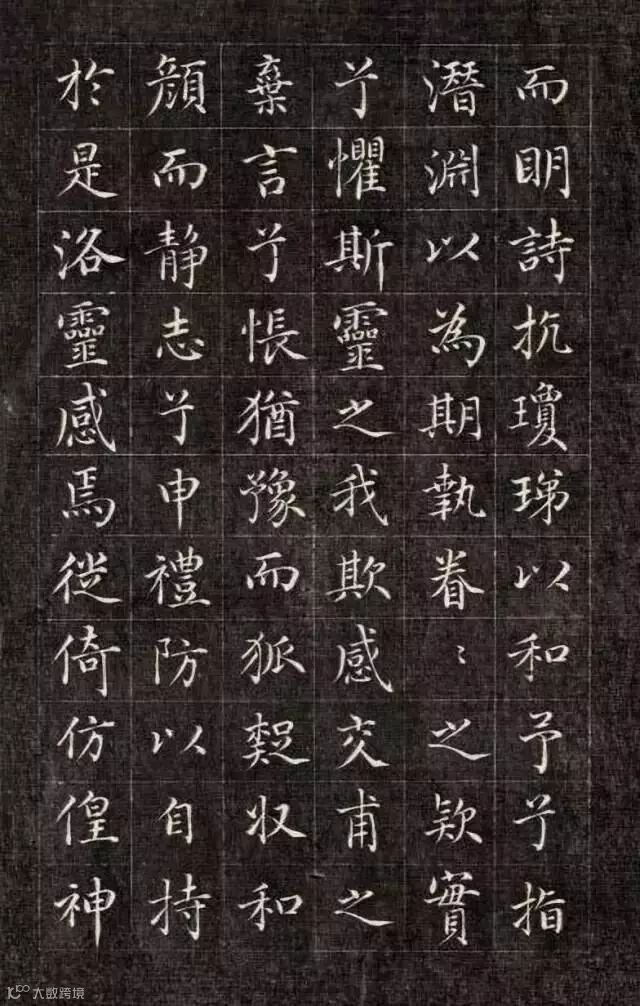 而眀詩抗瓊珶以和予兮指
潛淵以為期執眷〻之欵實
兮懼斯靈之我欺感交甫之
棄言兮悵猶豫而狐疑収和
顔而静志兮申禮防以自持
於是洛靈感焉徙倚仿偟神
大数跨境